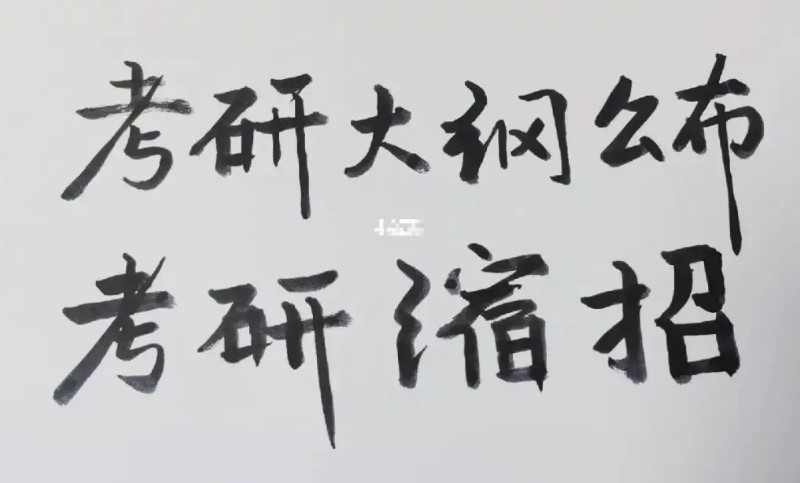 考研大纲公布
考研缩招